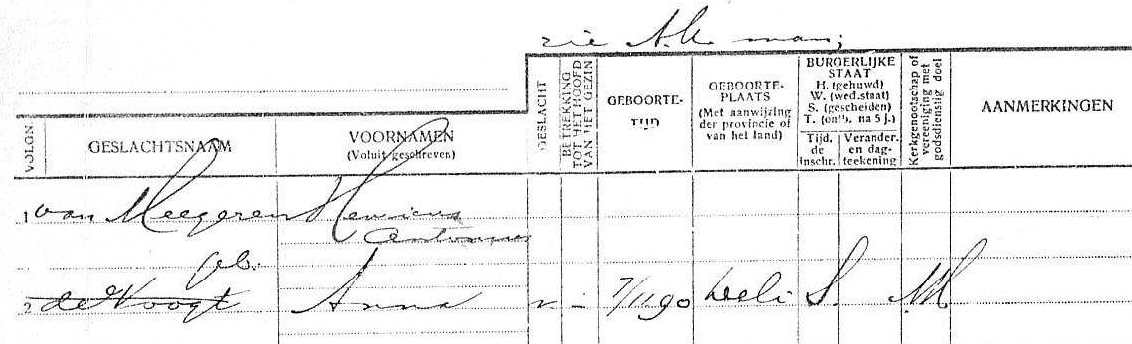 zie A.K. man;
VOLGN
GESLACHTSNAAM
VOORNAMEN
(Voluit geschreven)
GESLACHT
BETREKKING
TOT HET HOOFD
VAN HET GEZIN
GEBOORTE-
TIJD
GEBOORTE-
PLAATS
(Met aanwijzing
der provincie of
van het land)
BURGERLIJKE
STAAT
H. (gehuwd)
W. (wed.staat)
S. (gescheiden)
T. (on, na 5 j.)
Tijd.
de
inschr.
Verander.
en dag-
teekening
Kerkgenootschap of
vereeniging met
godsdienstig doel
AANMERKINGEN
1 van Meegeren Henricus
Antonius
geb.
2 de Voogt Anna v - 7/11 90 Deli S. NH